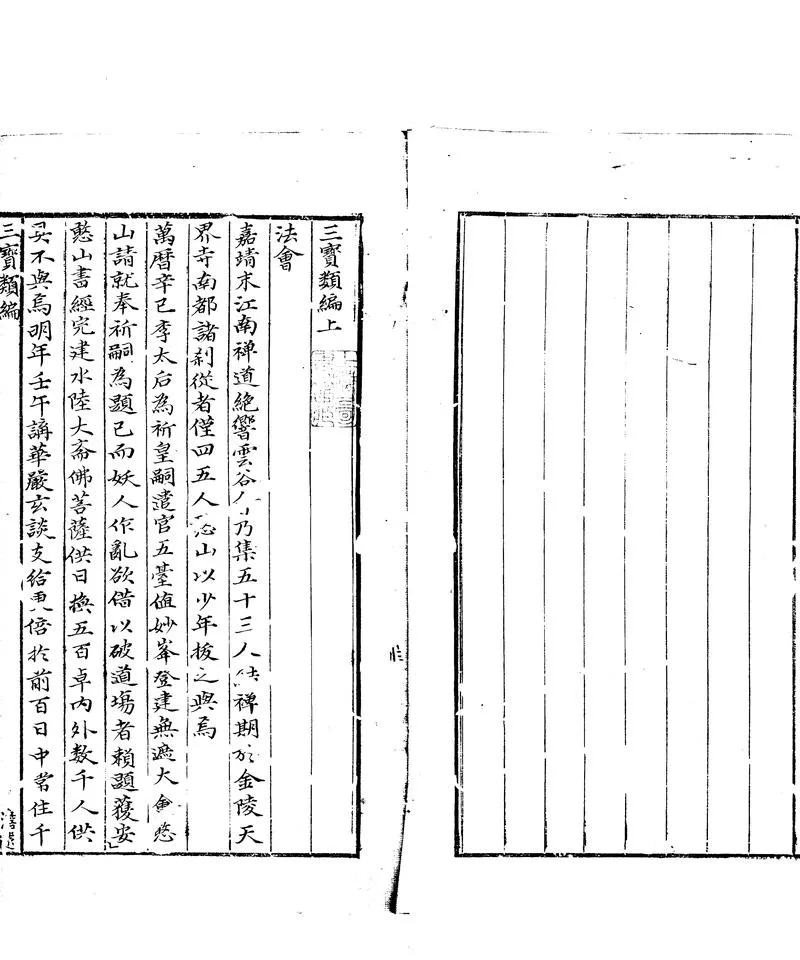 三寶類編上
法會
嘉靖末江南禪道絶響雲谷乃集五十三人結禪期於金陵天
界寺南都諸刹從者僅四五人憨山以少年拔之與焉
萬曆辛巳李太后為祈皇嗣遣官五臺值妙峯登建無遮大會憨
山請就奉祈嗣為題已而妖人作亂欲借以破道場者賴題獲安
憨山書經完建水陸大齋佛菩薩供日換五百卓内外數千人供
具不與焉明年壬午講華嚴玄談支給更倍於前百日中常住千
三寶類編